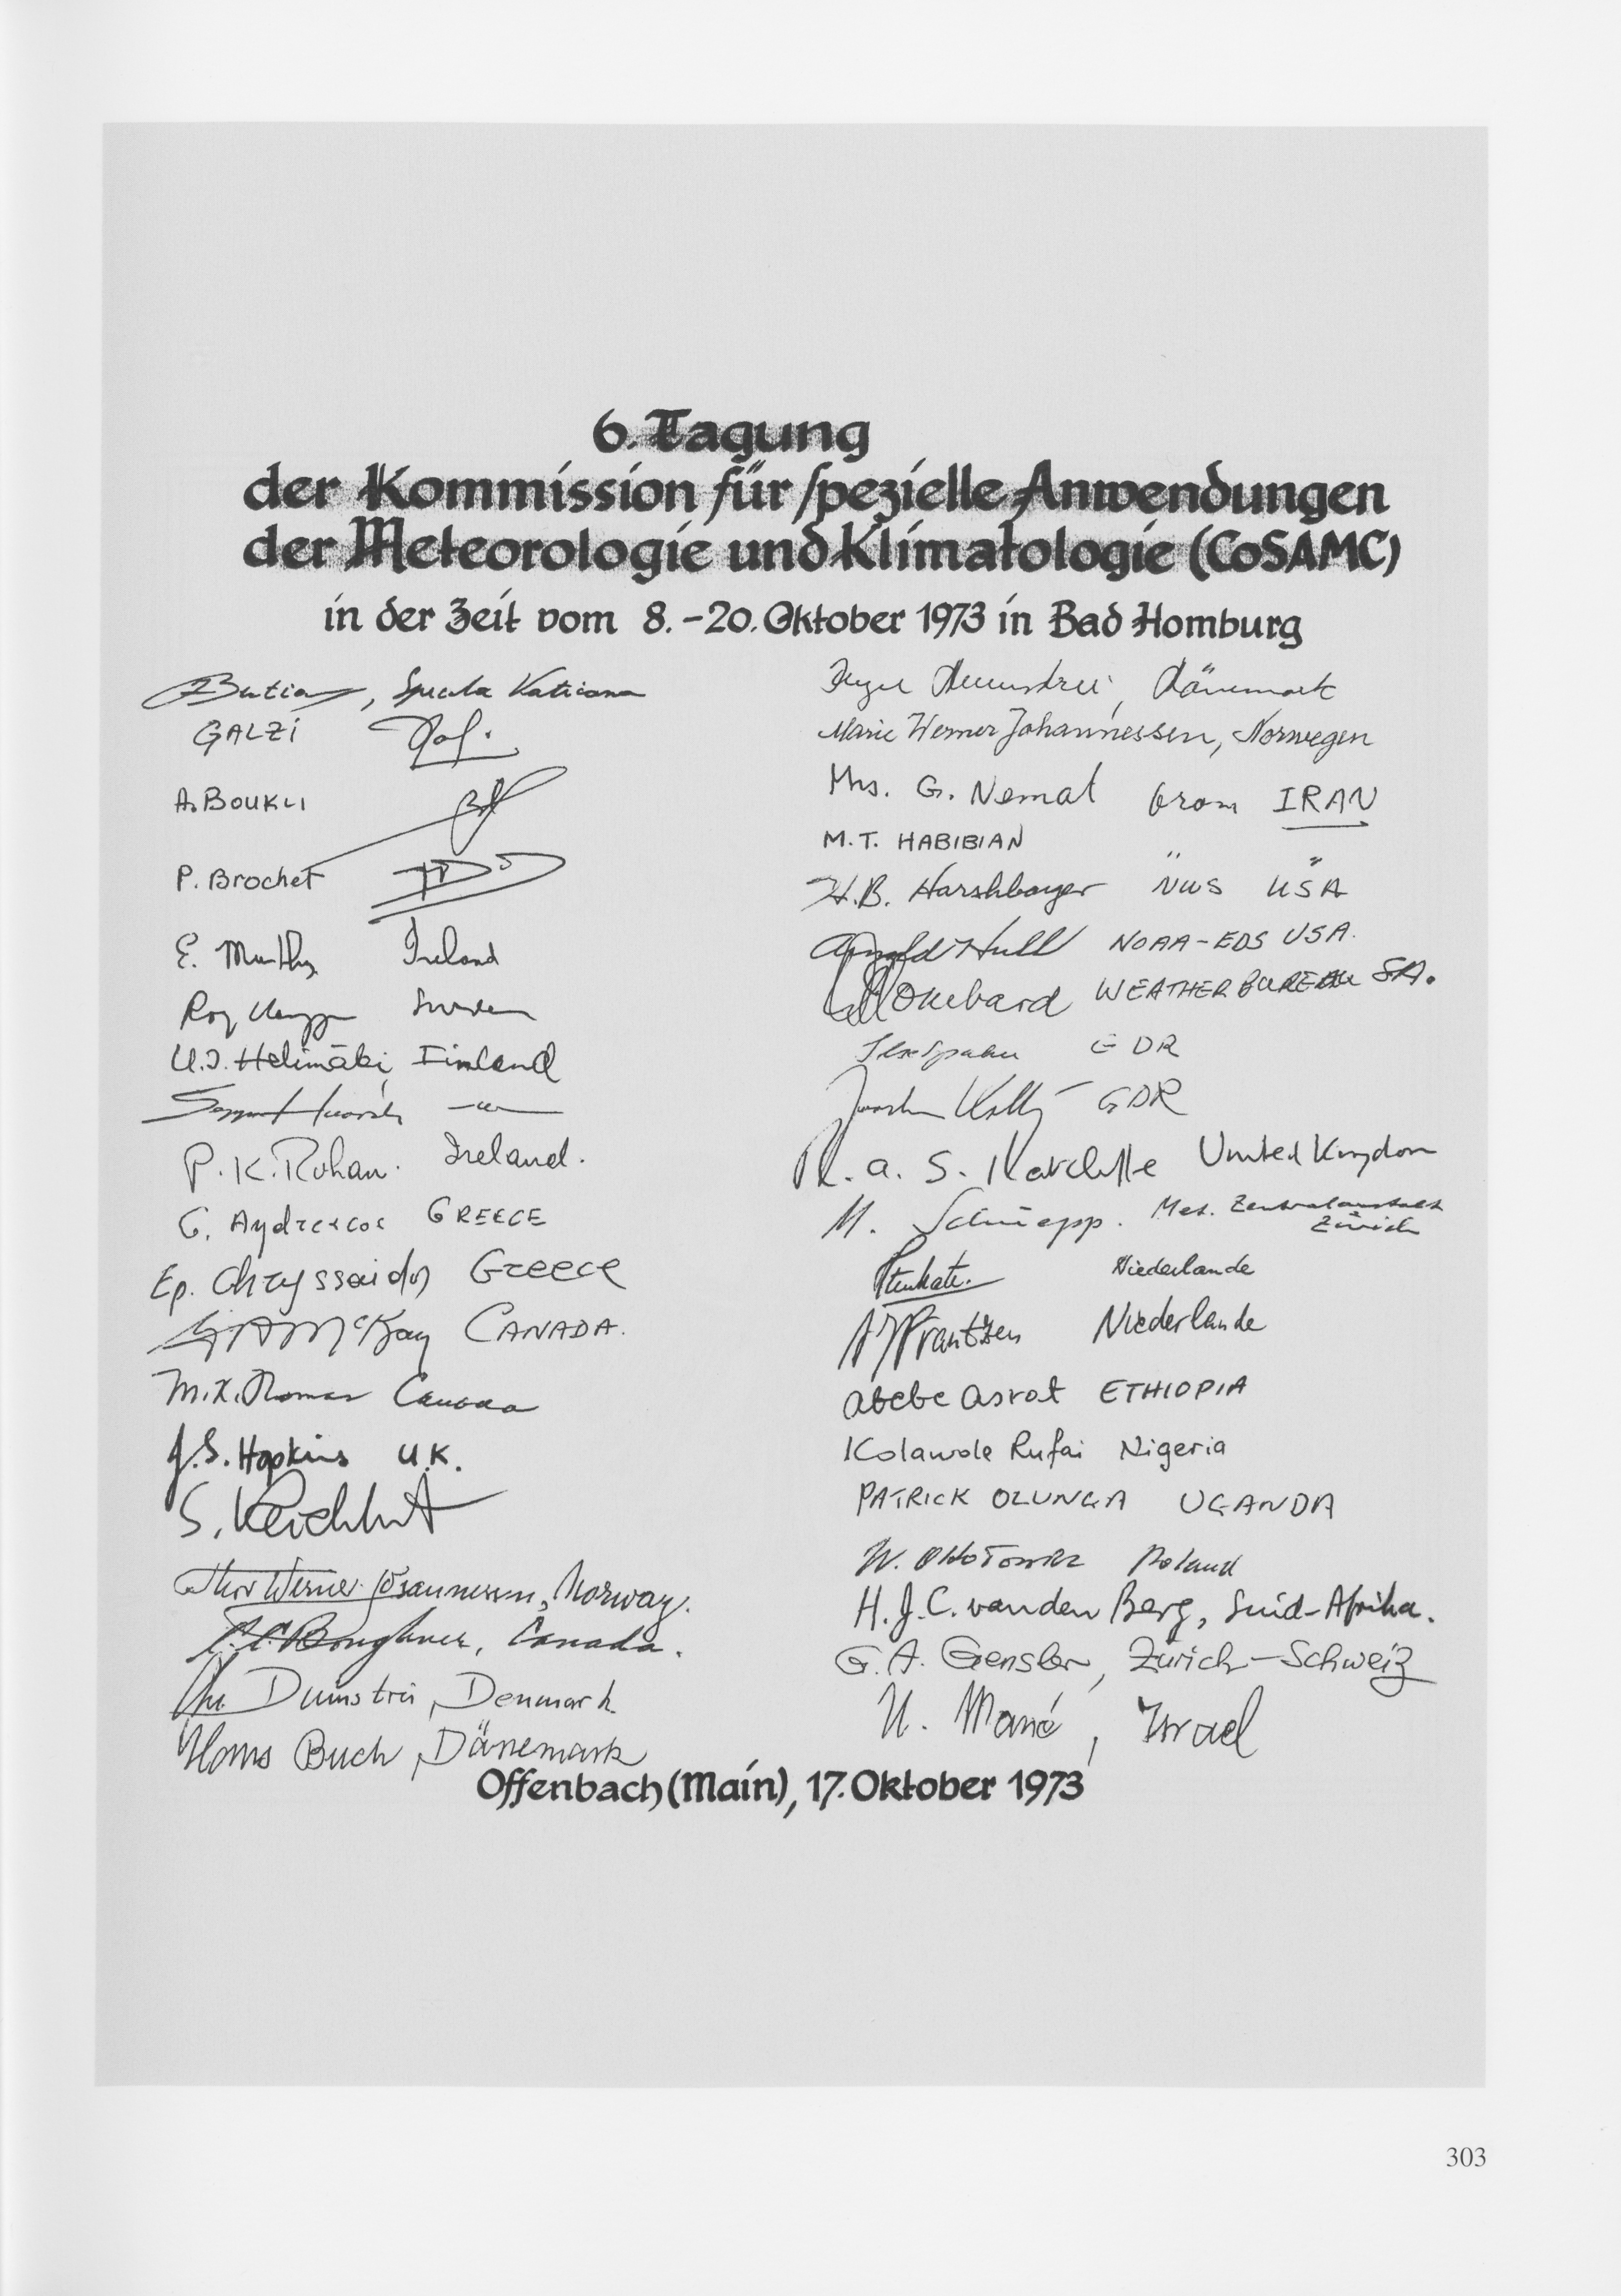 6. Tagung
der Kommission für spezielle Anwendungen
der Meteorologie und Klimatologie (CoSAMC)
in der Zeit vom 8.-20. Oktober 1973 in Bad Homburg
, Specula Vaticana
GALZI
A. BOUKLI
P. Brochet
E. Murphy Ireland
Roy Sweden
U.J. Helimäki, Finland
P.K. Rohan. Ireland.
G. GREECE
Ep. Chryssaidos Greece
McKay CANADA.
M.K. Thomas Canada
J.S. Hopkins U.K.
S.
Werner Johannessen, Norway.
Boughner, Canada.
Dumstrei, Denmark
Hans Buch, Dänemark
Inger Dumstrei, Dänemark
Marie Werner Johannessen, Norwegen
Mrs. G. Nemat from IRAN
M.T. HABIBIAN " "
H.B. Harshbarger NWS USA
Arnold Hull NOAA-EDS USA.
WEATHER BUREAU SA.
GDR
GDR
R.a.S. Ratcliffe United Kingdom
M. Schüepp. Met. Zentralanstalt
Zürich
Niederlande
Frantzen Niederlande
Abebe Asrat ETHIOPIA
Kolawole Rufai Nigeria
PATRICK OLUNGA UGANDA
W. Poland
H.J.C. van den Berg, Suid-Afrika.
G.A. Gensler, Zürich-Schweiz
U. Mané, Israel
Offenbach (Main), 17. Oktober 1973
303